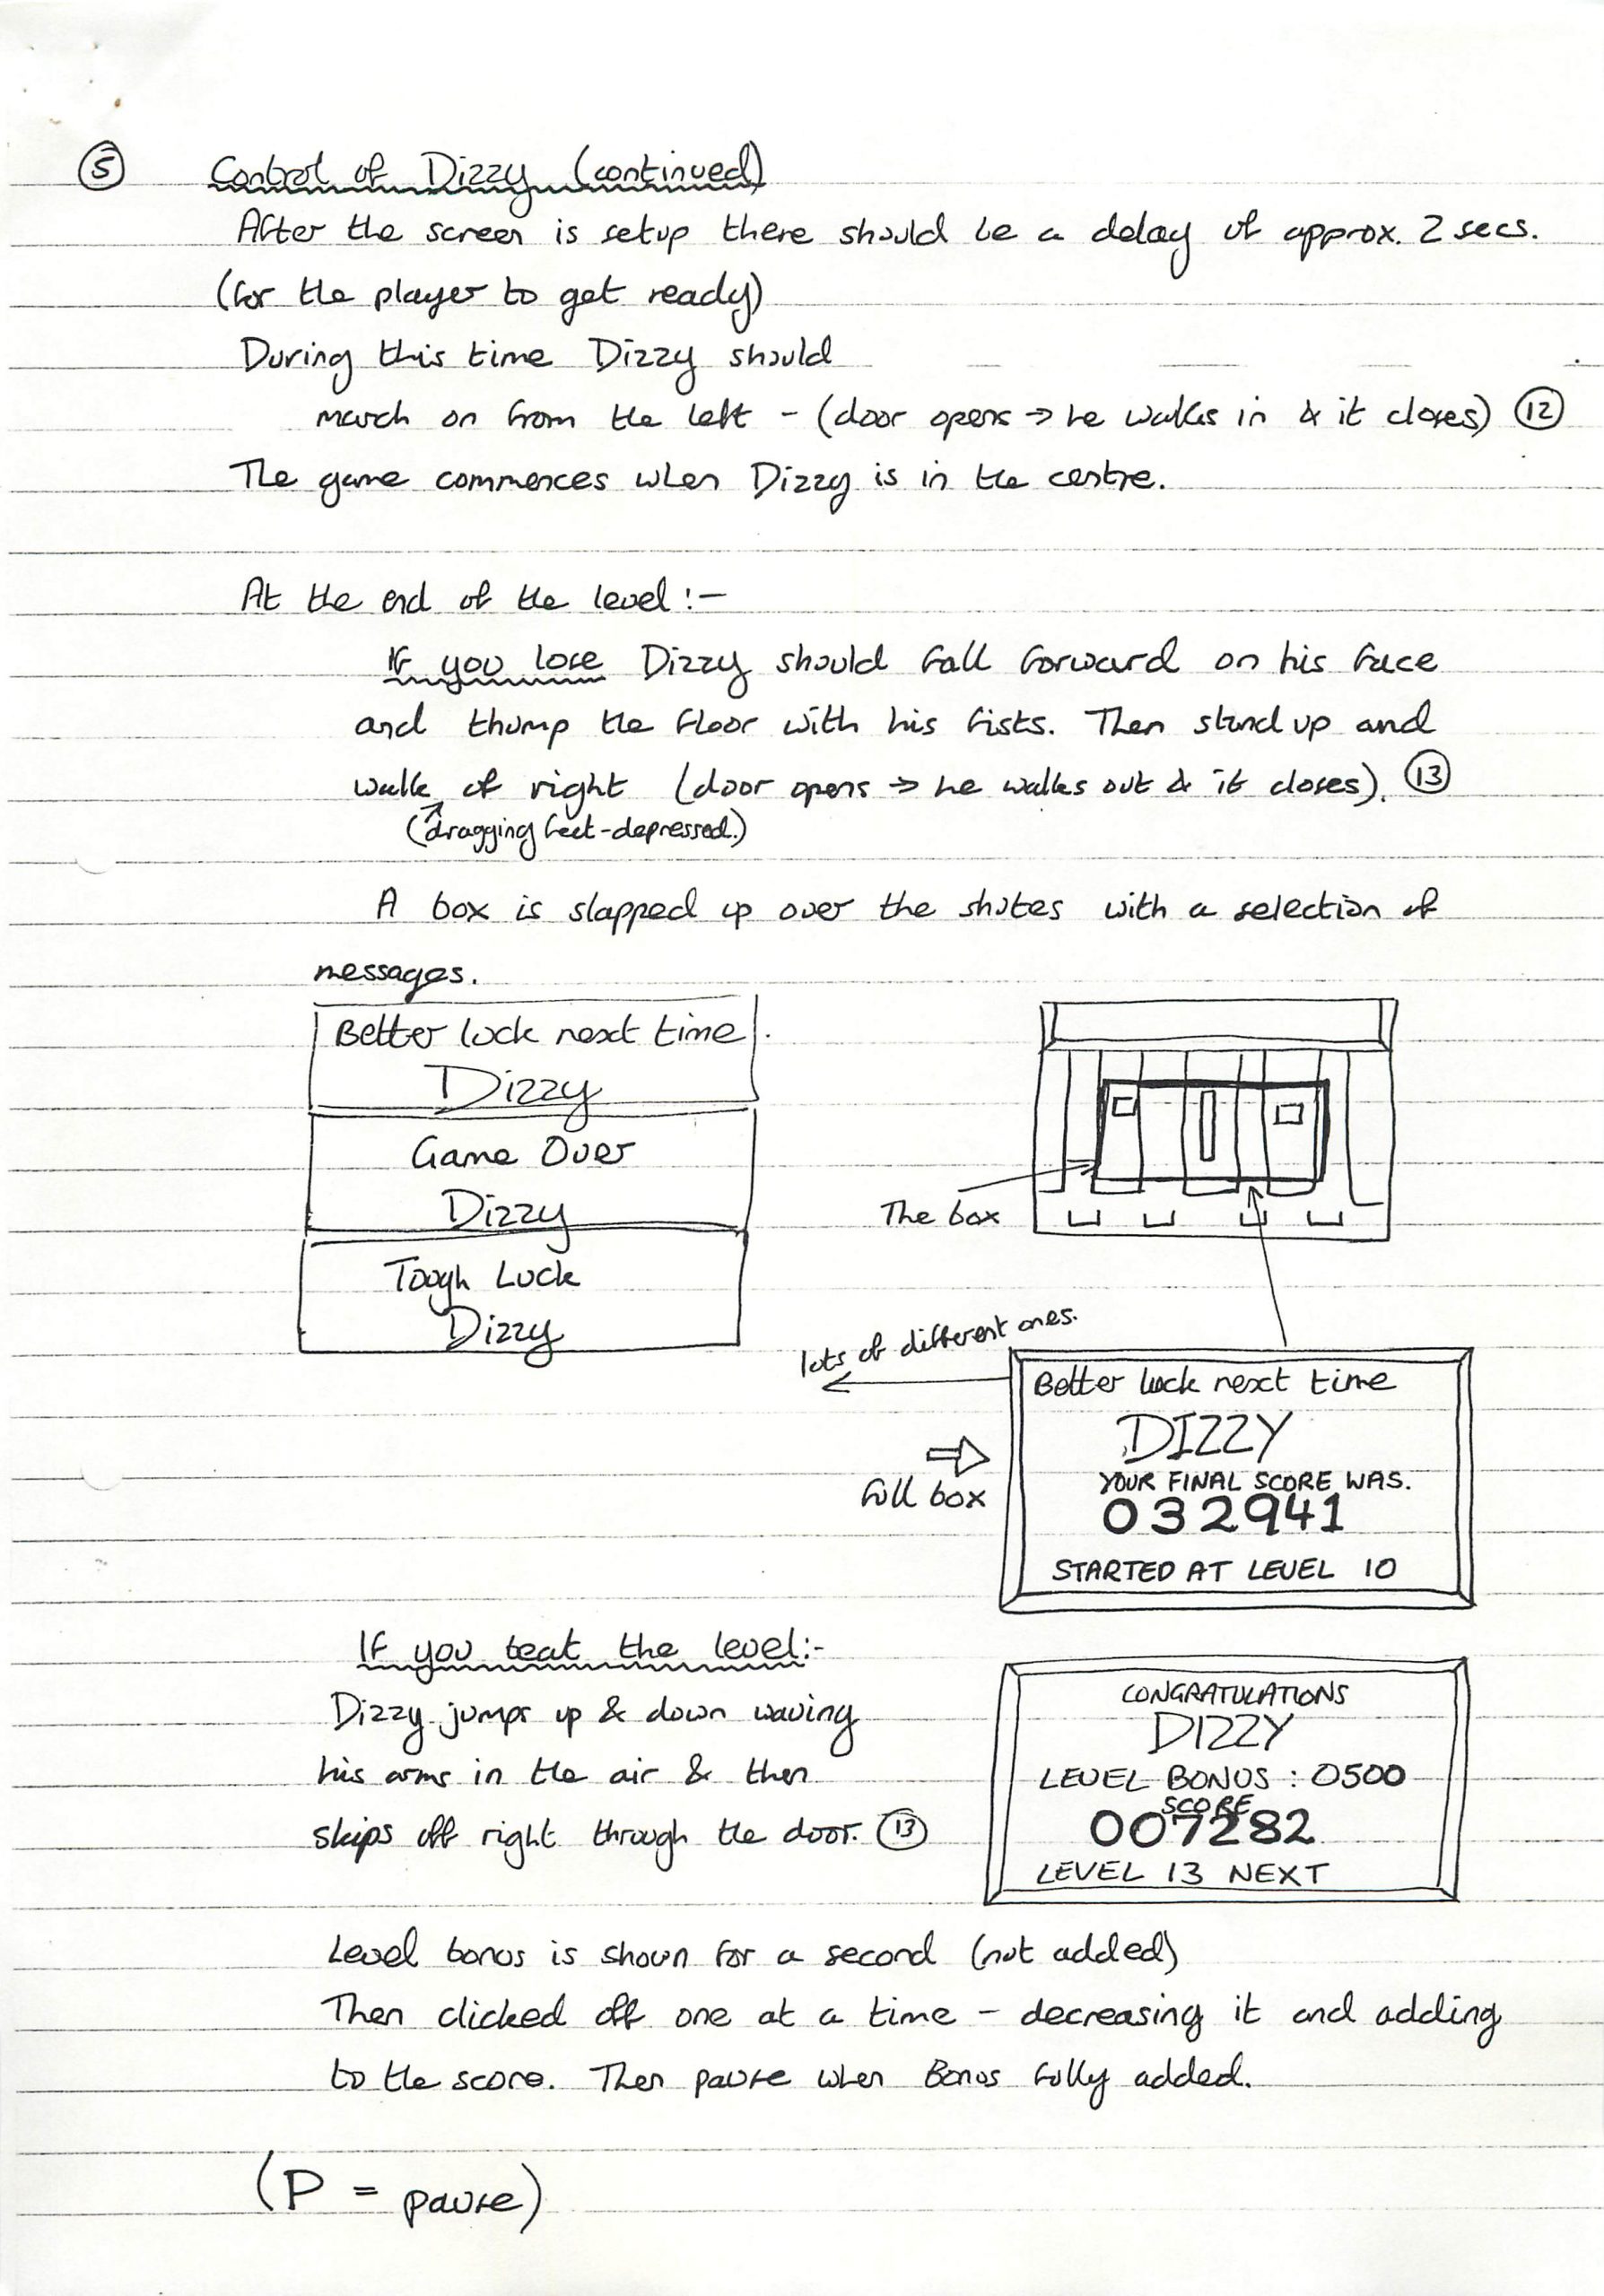 ⑤ Control of Dizzy (continued)
After the screen is setup there should be a delay of approx. 2 secs.
(for the player to get ready)
During this time Dizzy should
march on from the left - (door opens → he walks in & it closes) ⑫
The game commences when Dizzy is in the centre.
At the end of the level :-
If you lose Dizzy should fall forward on his face
and thump the floor with his fists. Then stand up and
walk of right (door opens → he walks out & it closes). ⑬
(dragging feet - depressed.)
A box is slapped up over the shutes with a selection of
messages.
Better luck next time
Dizzy
Game Over
Dizzy
Tough Luck
Dizzy
The box
lots of different ones.
Better luck next time
DIZZY
YOUR FINAL SCORE WAS.
032941
STARTED AT LEVEL 10
full box
If you beat the level :-
Dizzy jumps up & down waving
his arms in the air & then
skips off right through the door. ⑬
CONGRATULATIONS
DIZZY
LEVEL BONUS : 0500
SCORE
007282
LEVEL 13 NEXT
Level bonus is shown for a second (not added)
Then clicked off one at a time - decreasing it and adding
to the score. Then pause when Bonus fully added.
(P = pause)